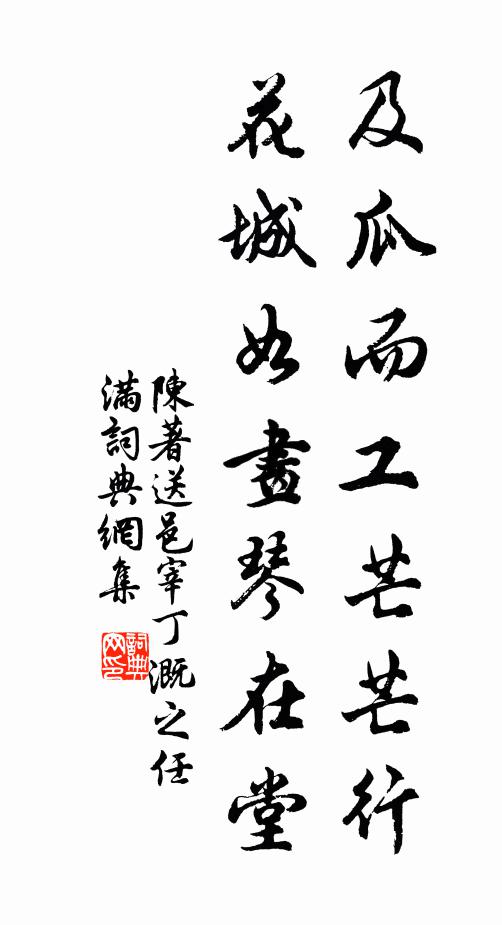 及瓜而工芒芒行
花城如畫琴在堂
陳著送邑宰丁溉之任
滿詞典網集
詞典网印